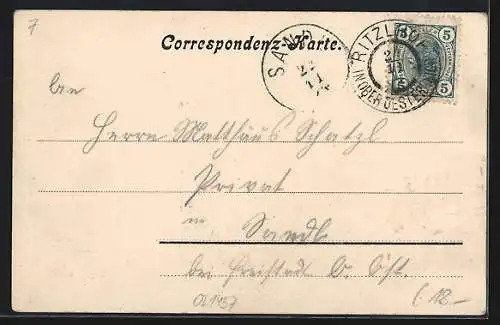 7
Correspondenz-Karte.
SAND
24
11
RITZLHOF
IN OBER OESTER
5 5
An
Herrn Matthäus Schatzl
Privat
in Sandl
bei Freistadt O. Öst.
(12.-